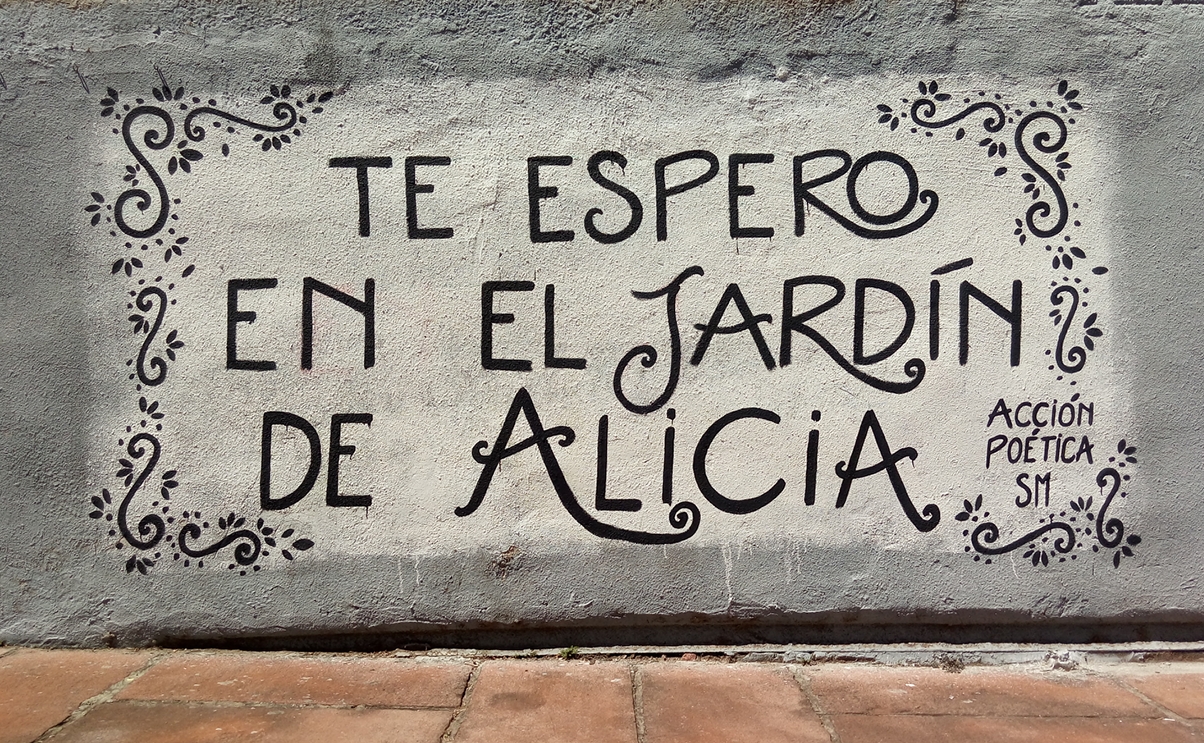 TE ESPERO
EN EL JARDÍN
DE ALiCiA
ACCIÓN
POÉTICA
SM